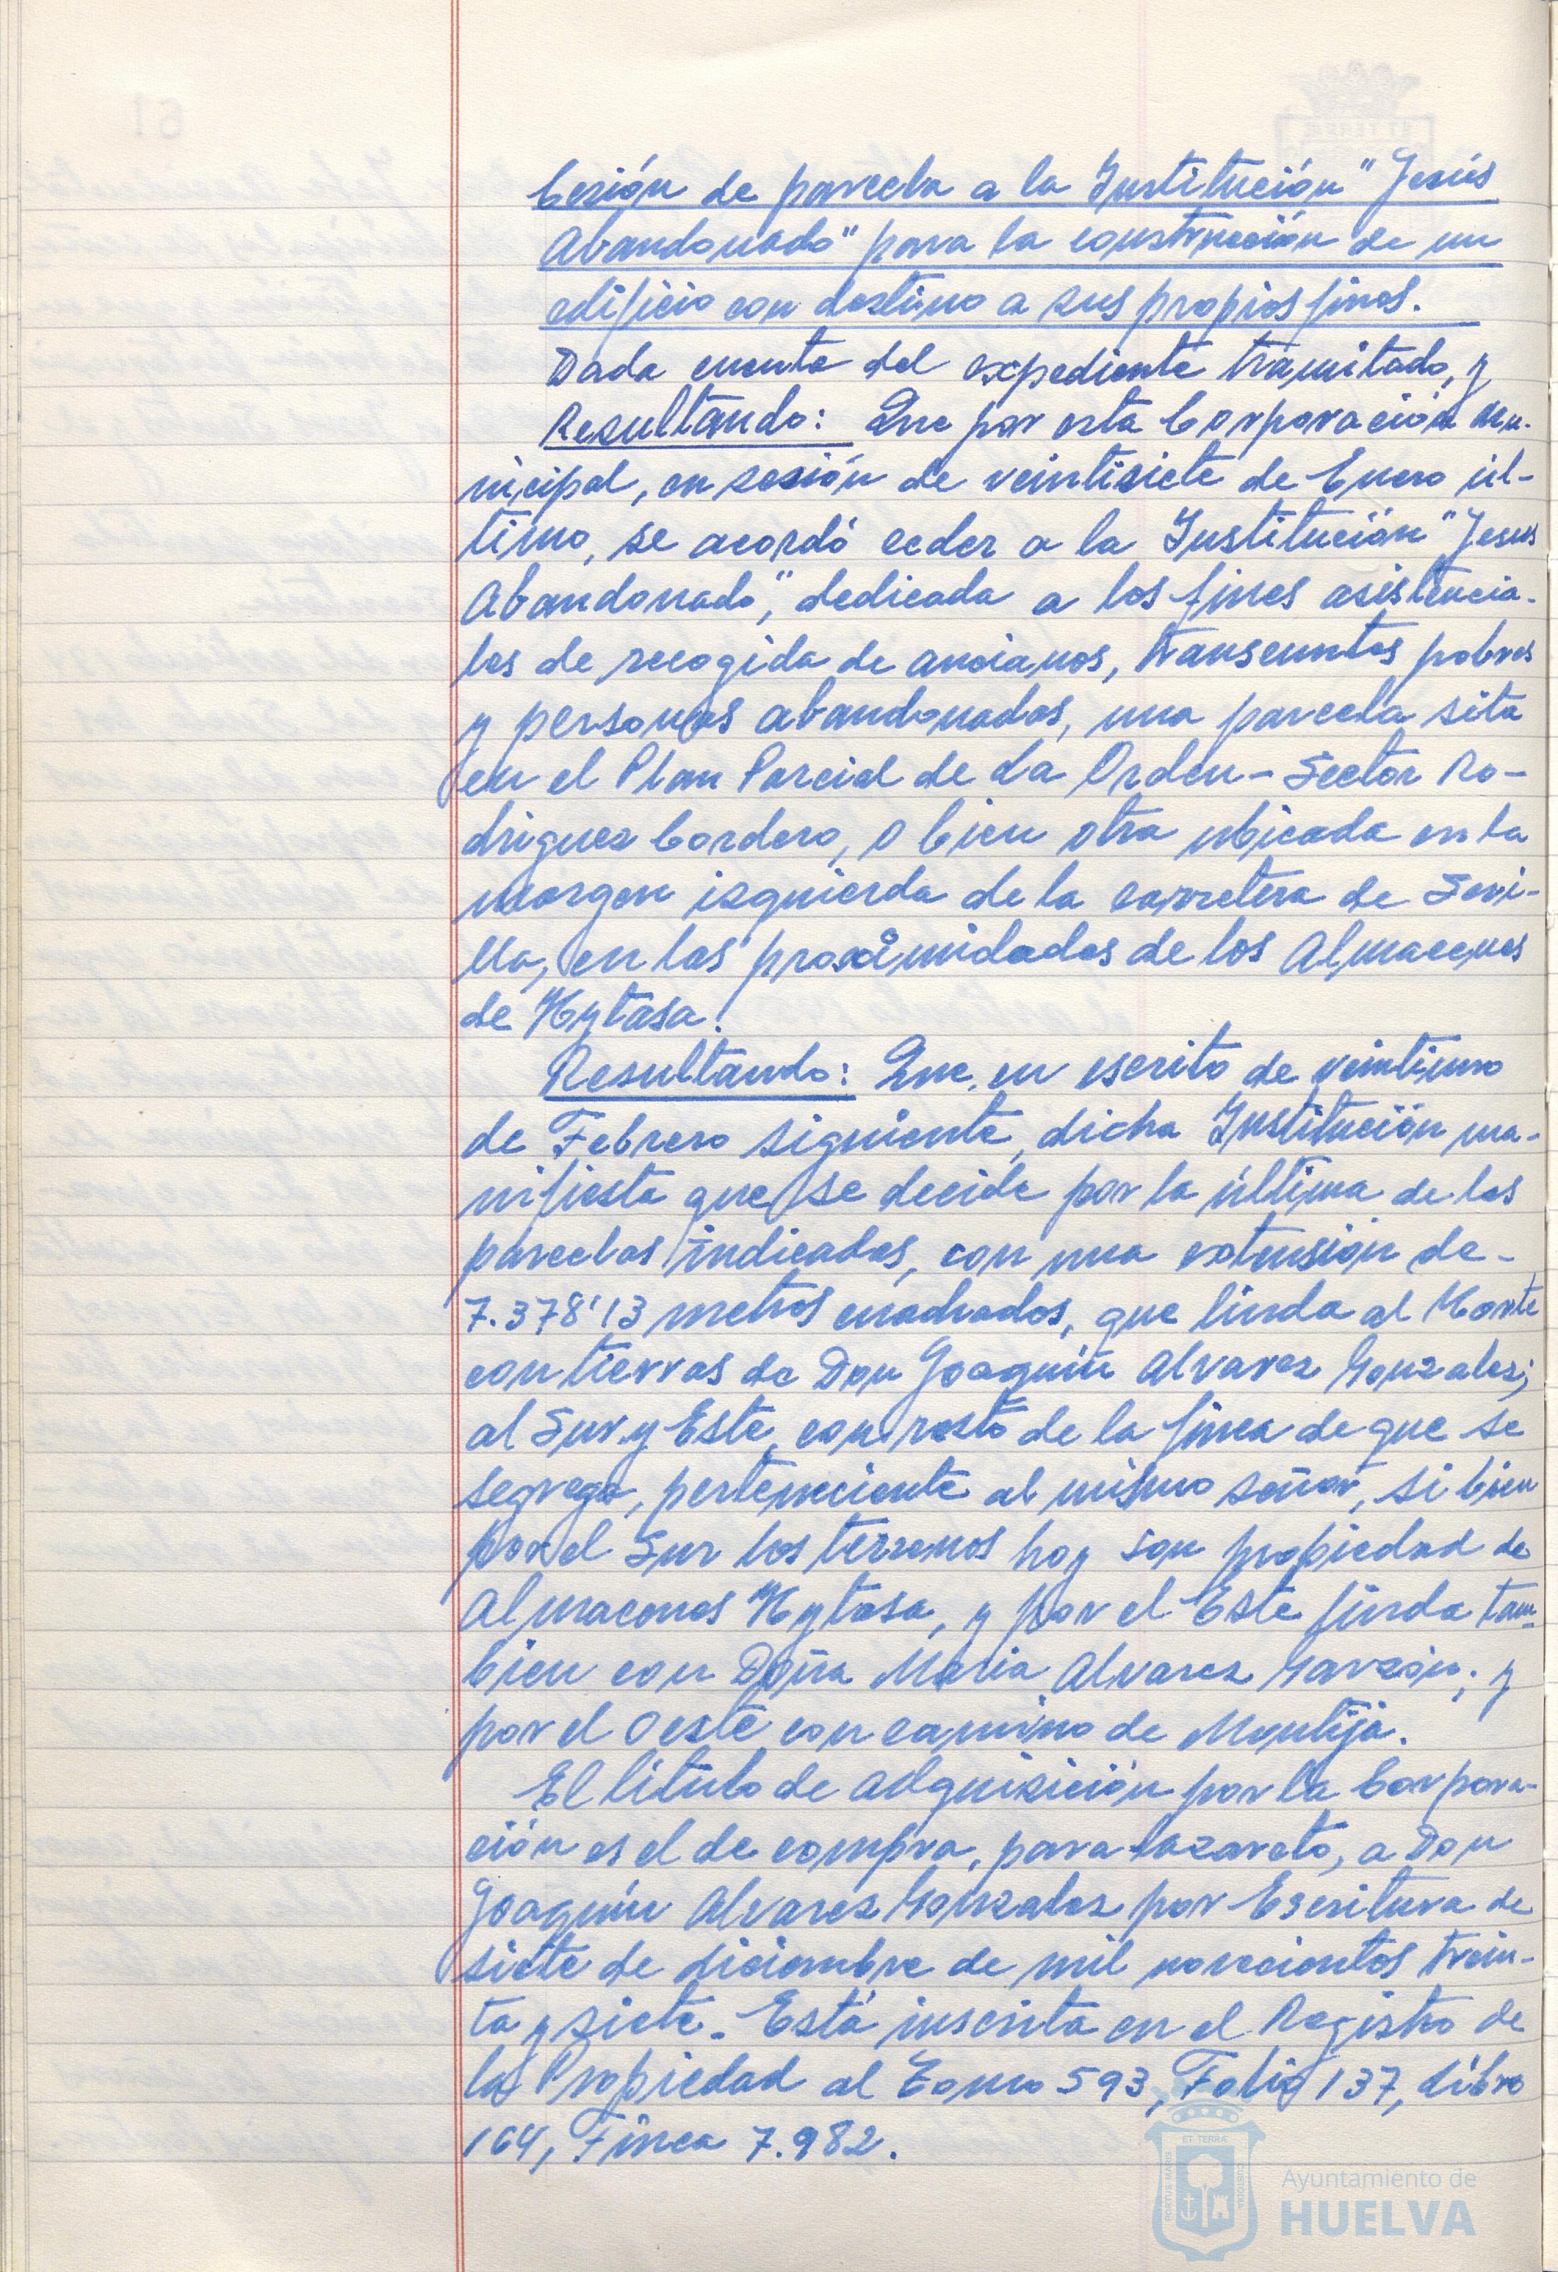 Cesión de parcela a la Institución "Jesús
Abandonado" para la construcción de un
edificio con destino a sus propios fines.
Dada cuenta del expediente tramitado, y
Resultando: Que por esta Corporación Mu-
nicipal, en sesión de veintisiete de Enero úl-
timo, se acordó ceder a la Institución "Jesus
Abandonado", dedicada a los fines asistencia-
les de recogida de ancianos, transeuntes pobres
y personas abandonadas, una parcela sita
en el Plan Parcial de La Orden - Sector Ro-
driguez Cordero, o bien otra ubicada en la
margen izquierda de la carretera de Sevi-
lla, en las proximidades de los Almacenes
de Hytasa.
Resultando: Que en escrito de veintiuno
de Febrero siguiente, dicha Institución ma-
nifiesta que se decide por la última de las
parcelas indicadas, con una extensión de-
7.378'13 metros cuadrados, que linda al Norte
con tierras de Don Joaquín Alvarez Gonzalez;
al Sur y Este, con resto de la finca de que se
segrega, perteneciente al mismo señor, si bien
por el Sur los terrenos hoy son propiedad de
Almacenes Hytasa, y por el Este linda tam-
bien con Doña Maria Alvarez Garzón; y
por el Oeste con camino de Montija.
El titulo de adquisición por la Corpora-
ción es el de compra, para lazareto, a Don
Joaquín Alvarez Gonzalez por Escritura de
siete de diciembre de mil novecientos trein-
ta y siete. Está inscrita en el Registro de
la Propiedad al Tomo 593, Folio 137, Libro
164, Finca 7.982.
ET TERRA
PORTUS MARIS
CUSTODIA
Ayuntamiento de
HUELVA